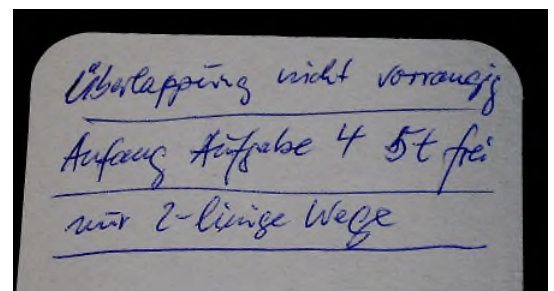 Überlappung nicht vorrangig
Anfang Aufgabe 4 5t frei
nur 2-linige Wege